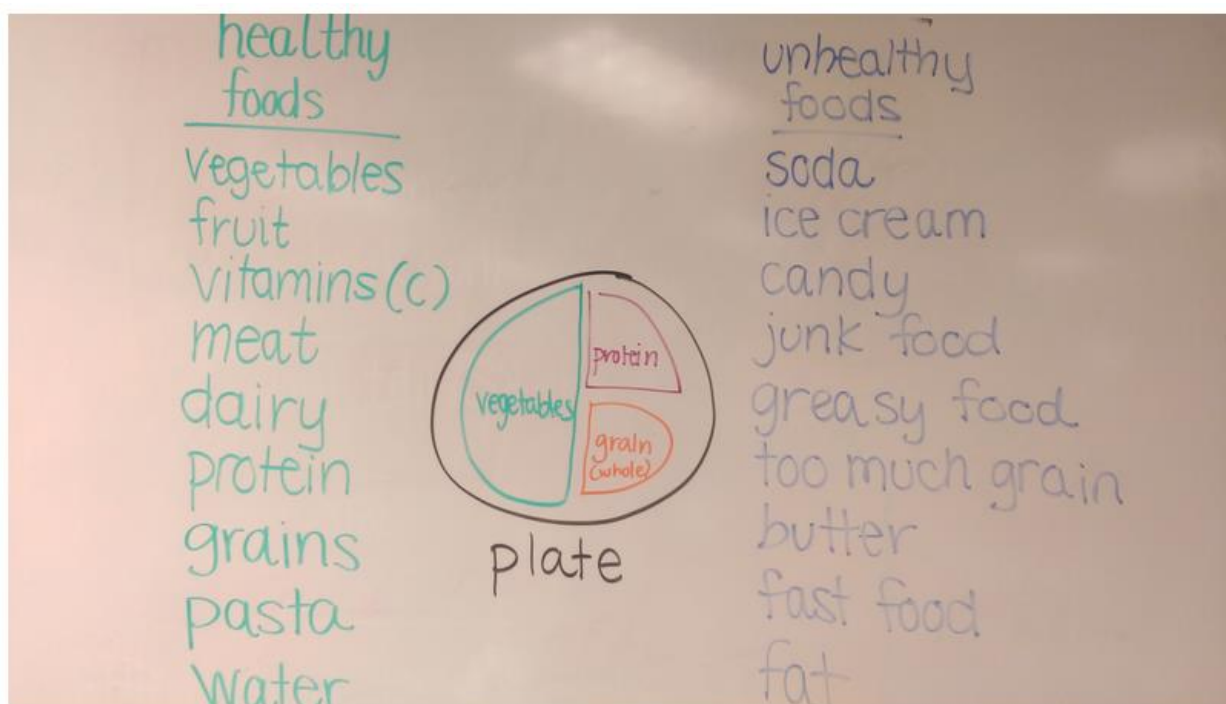 healthy
foods
vegetables
fruit
vitamins (c)
meat
dairy
protein
grains
pasta
water
vegetables
protein
grain
(whole)
plate
unhealthy
foods
soda
ice cream
candy
junk food
greasy food
too much grain
butter
fast food
fat